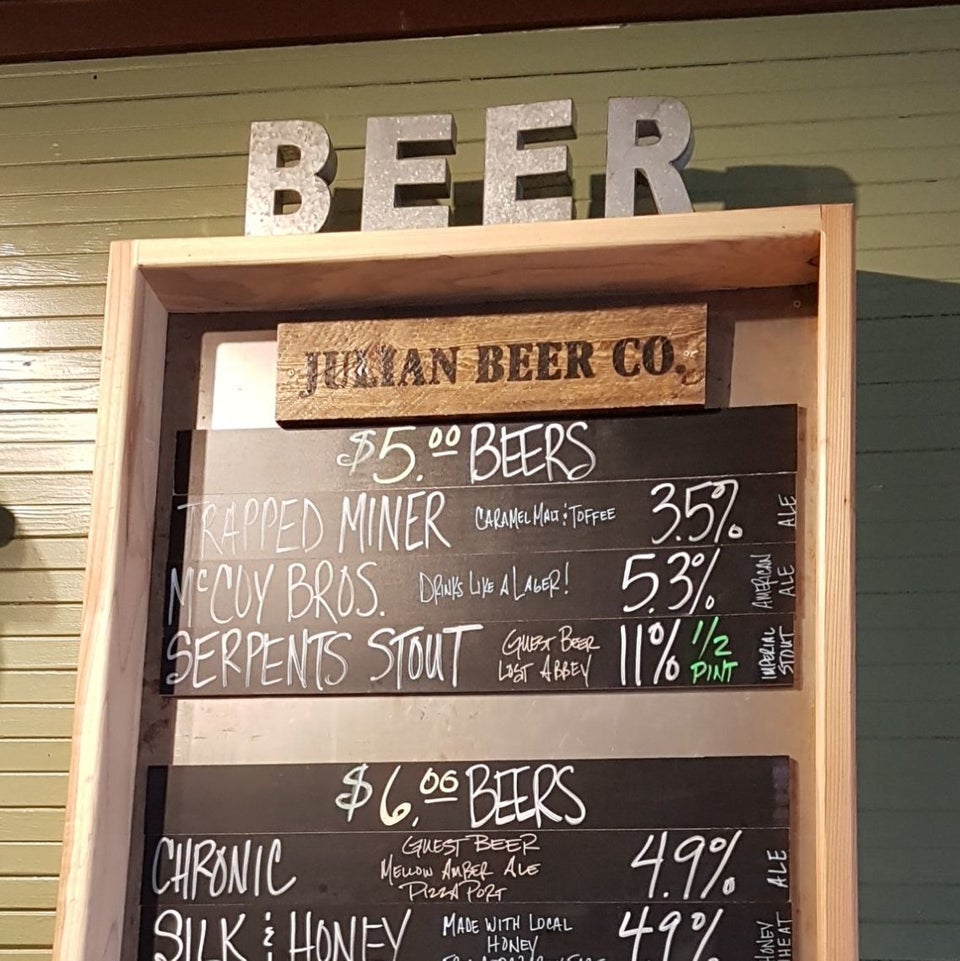 BEER
JULIAN BEER CO.
$5.00 BEERS
TRAPPED MINER CARAMEL MALT & TOFFEE 3.5% ALE
McCOY BROS. DRINKS LIKE A LAGER! 5.3% AMERICAN ALE
SERPENTS STOUT GUEST BEER LOST ABBEY 11% 1/2 PINT IMPERIAL STOUT
$6.00 BEERS
CHRONIC GUEST BEER MELLOW AMBER ALE PIZZA PORT 4.9% ALE
SILK & HONEY MADE WITH LOCAL HONEY 4.9% HONEY WHEAT